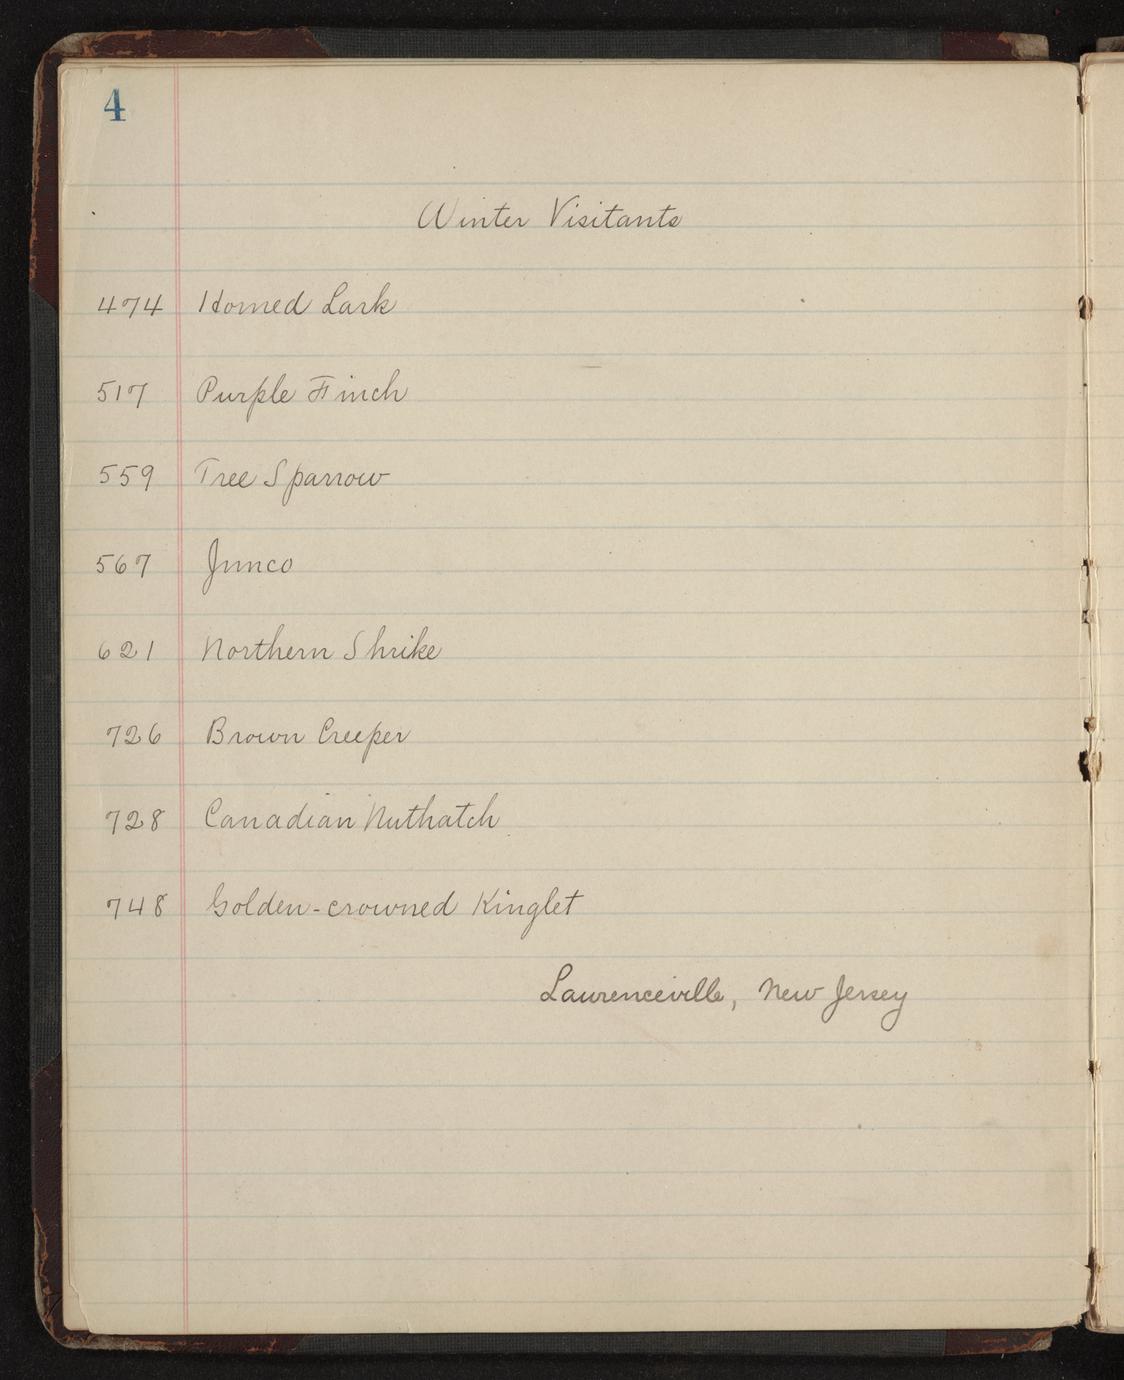 4
Winter Visitants
474 Horned Lark
517 Purple Finch
559 Tree Sparrow
567 Junco
621 Northern Shrike
726 Brown Creeper
728 Canadian Nuthatch
748 Golden-crowned Kinglet
Laurenceville, New Jersey